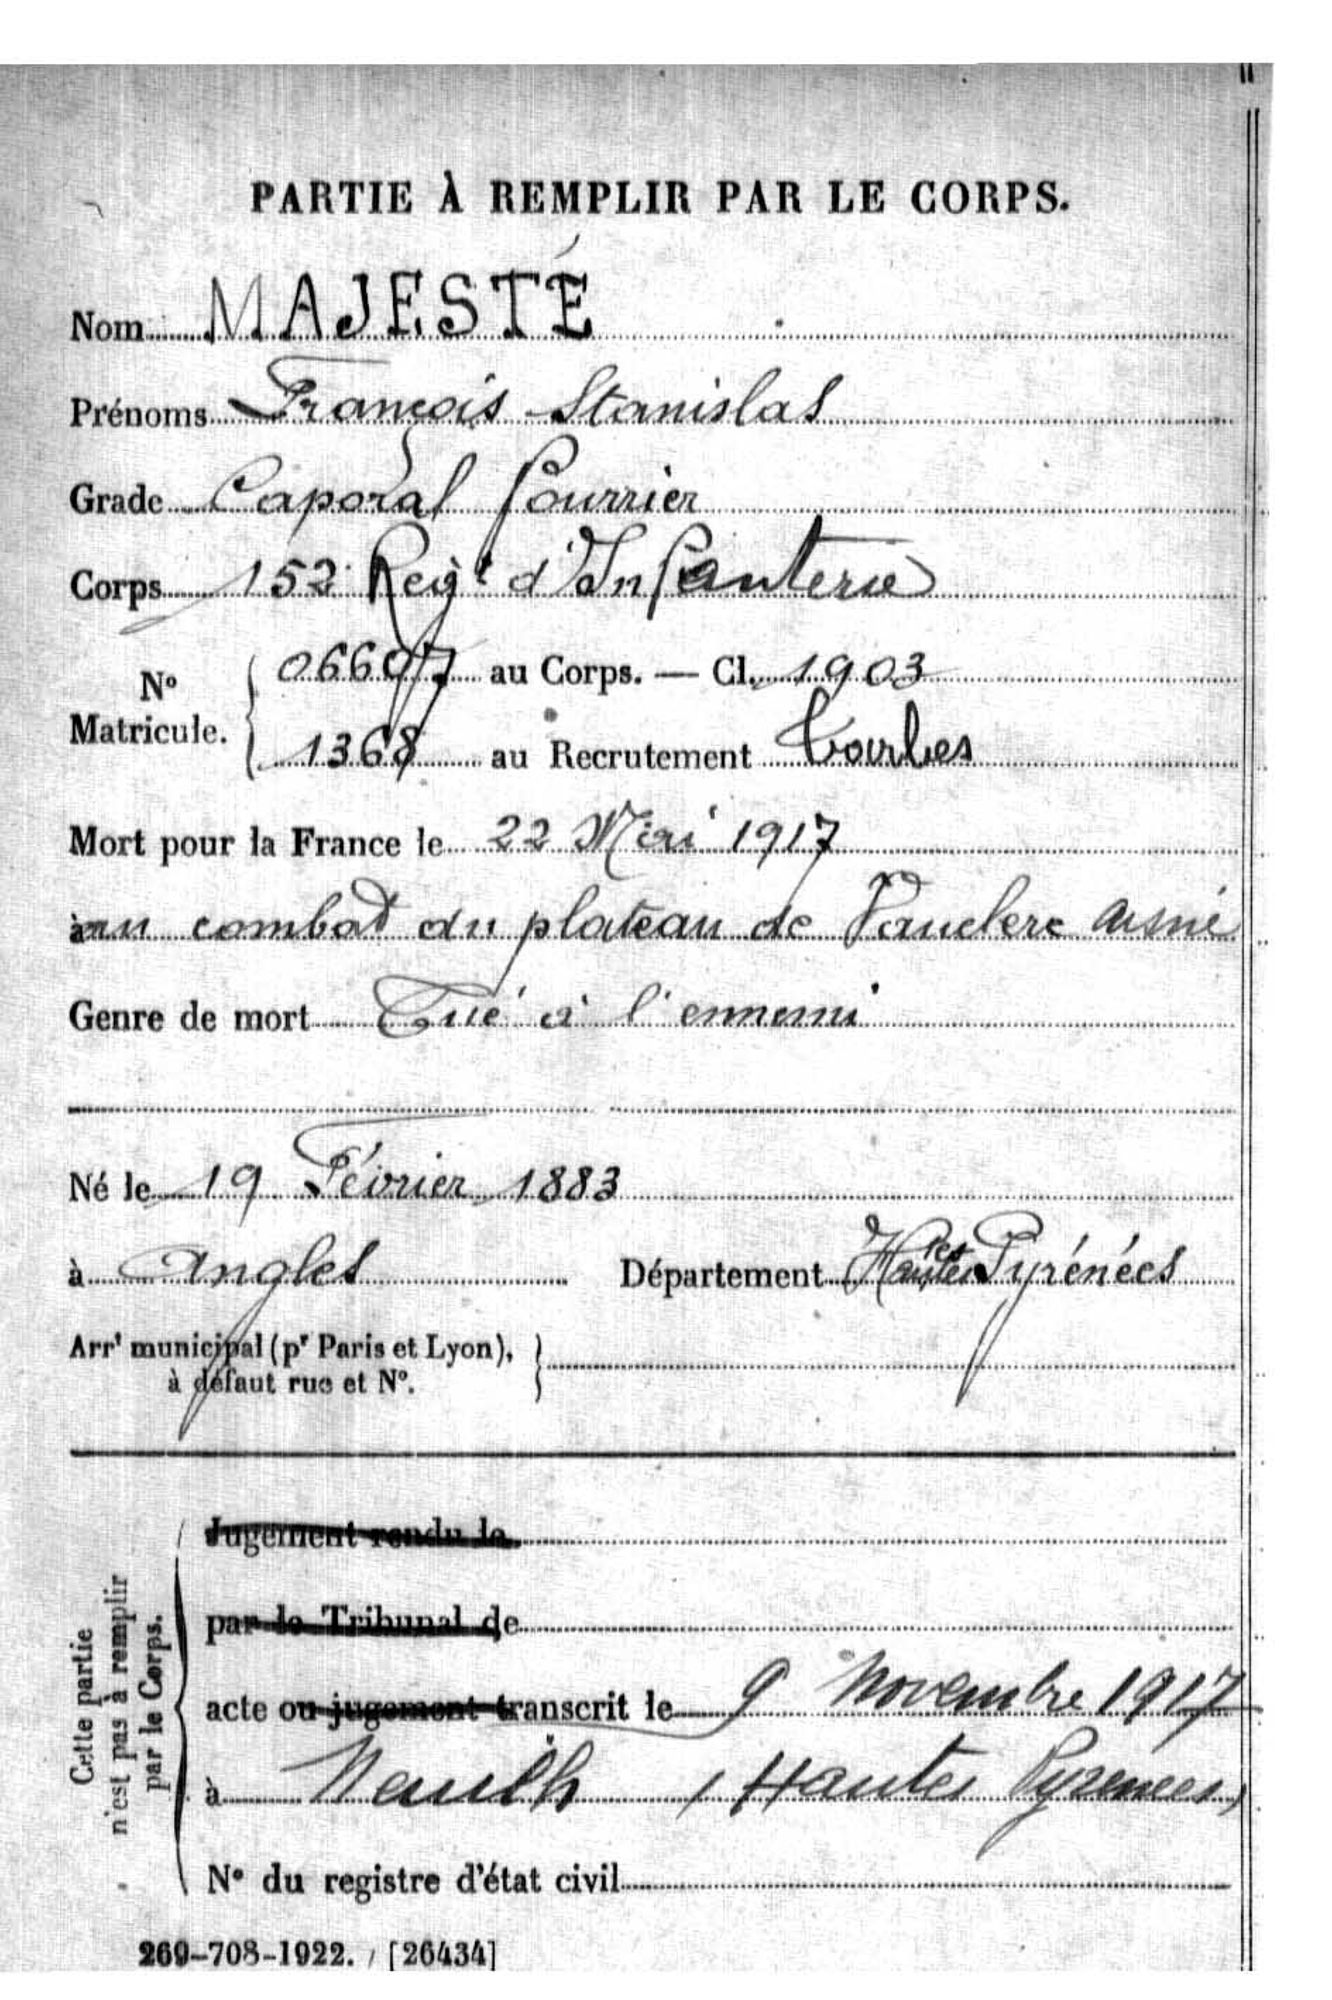 PARTIE À REMPLIR PAR LE CORPS.
Nom MAJESTÉ
Prénoms François Stanislas
Grade Caporal fourrier
Corps 152 Regt d'Infanterie
No Matricule. 06697 au Corps. — Cl. 1903
1368 au Recrutement Tarbes
Mort pour la France le 22 Mai 1917
au combat du plateau de Vauclerc Aisne
Genre de mort Tué à l'ennemi
Né le 19 Février 1883
à Angles Département Hautes Pyrénées
Arrt municipal (pr Paris et Lyon),
à défaut rue et No.
Cette partie
n'est pas à remplir
par le Corps.
Jugement rendu le
par le Tribunal de
acte ou jugement transcrit le 9 Novembre 1917
à Neuilh (Hautes Pyrénées)
No du registre d'état civil
269-708-1922. [26434]